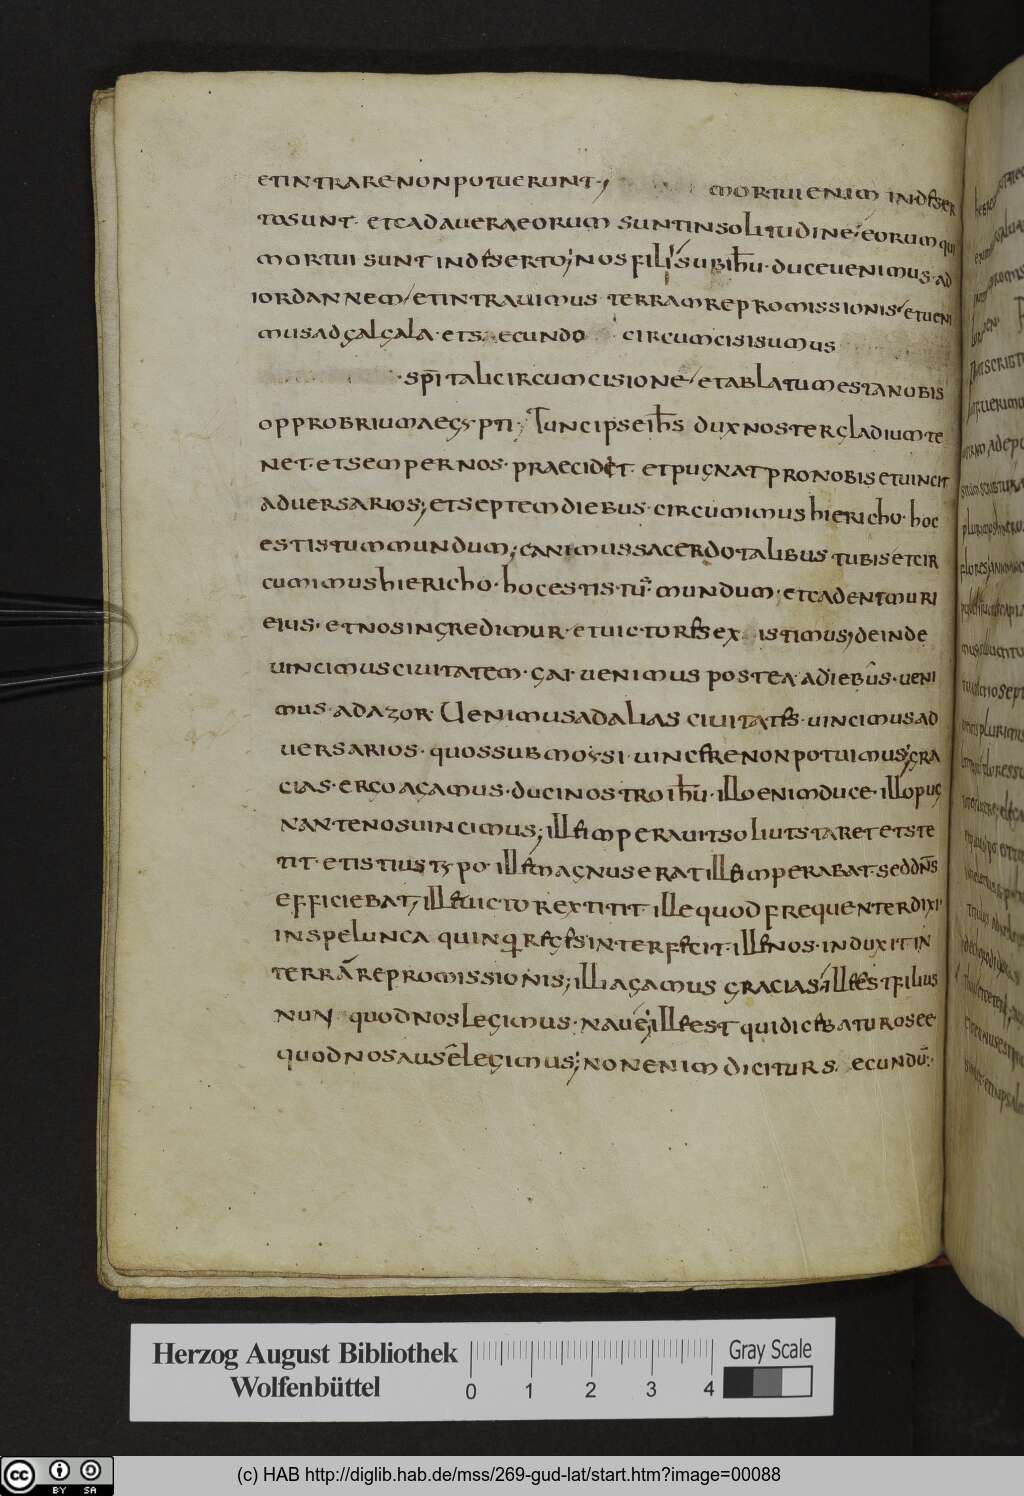 et intrare non potuerunt; mortui enim in deser
to sunt. et cadauera eorum sunt in solitudine; eorum qui
mortui sunt in deserto; nos filii sub ihū. duce uenimus. ad
iordannem / et intrauimus terram repromissionis / et ueni
mus ad galgala. et secundo circumcisi sumus
spītali circumcisione / et ablatum est a nobis
opprobrium aegypti; Tunc ipse ihs dux noster gladium te
net. et semper nos. praecidet. et pugnat pro nobis et uincit
aduersarios; et septem diebus. circumimus hiericho. hoc
est istum mundum; canimus sacerdotalibus tubis et cir
cumimus hiericho. hoc est istū. mundum. et cadent muri
eius. et nos ingredimur. et uictores ex istimus; deinde
uincimus ciuitatem. gai. uenimus postea. ad iebus. ueni
mus. ad azor. Uenimus ad alias ciuitates. uincimus ad
uersarios. quos sub moysi. uincere non potuimus; gra
cias. ergo agamus. duci nostro ihū. illo enim duce. illo pug
nante nos uincimus; ille imperauit sol ut staret et ste
tit. et istius
ille magnus erat ille imperabat. sed dns
efficiebat; ille uictor extitit ille quod frequenter dixi
in spelunca quinq reges interfecit. ille nos. induxit in
terrā repromissionis; illi agamus gracias; ille est filius
nun quod nos legimus. naue; ille est qui dicebatur osee
quod nos ausē legimus; non enim dicitur secundū.
Herzog August Bibliothek
Wolfenbüttel
0 1 2 3 4
Gray Scale
cc BY SA
(c) HAB http://diglib.hab.de/mss/269-gud-lat/start.htm?image=00088